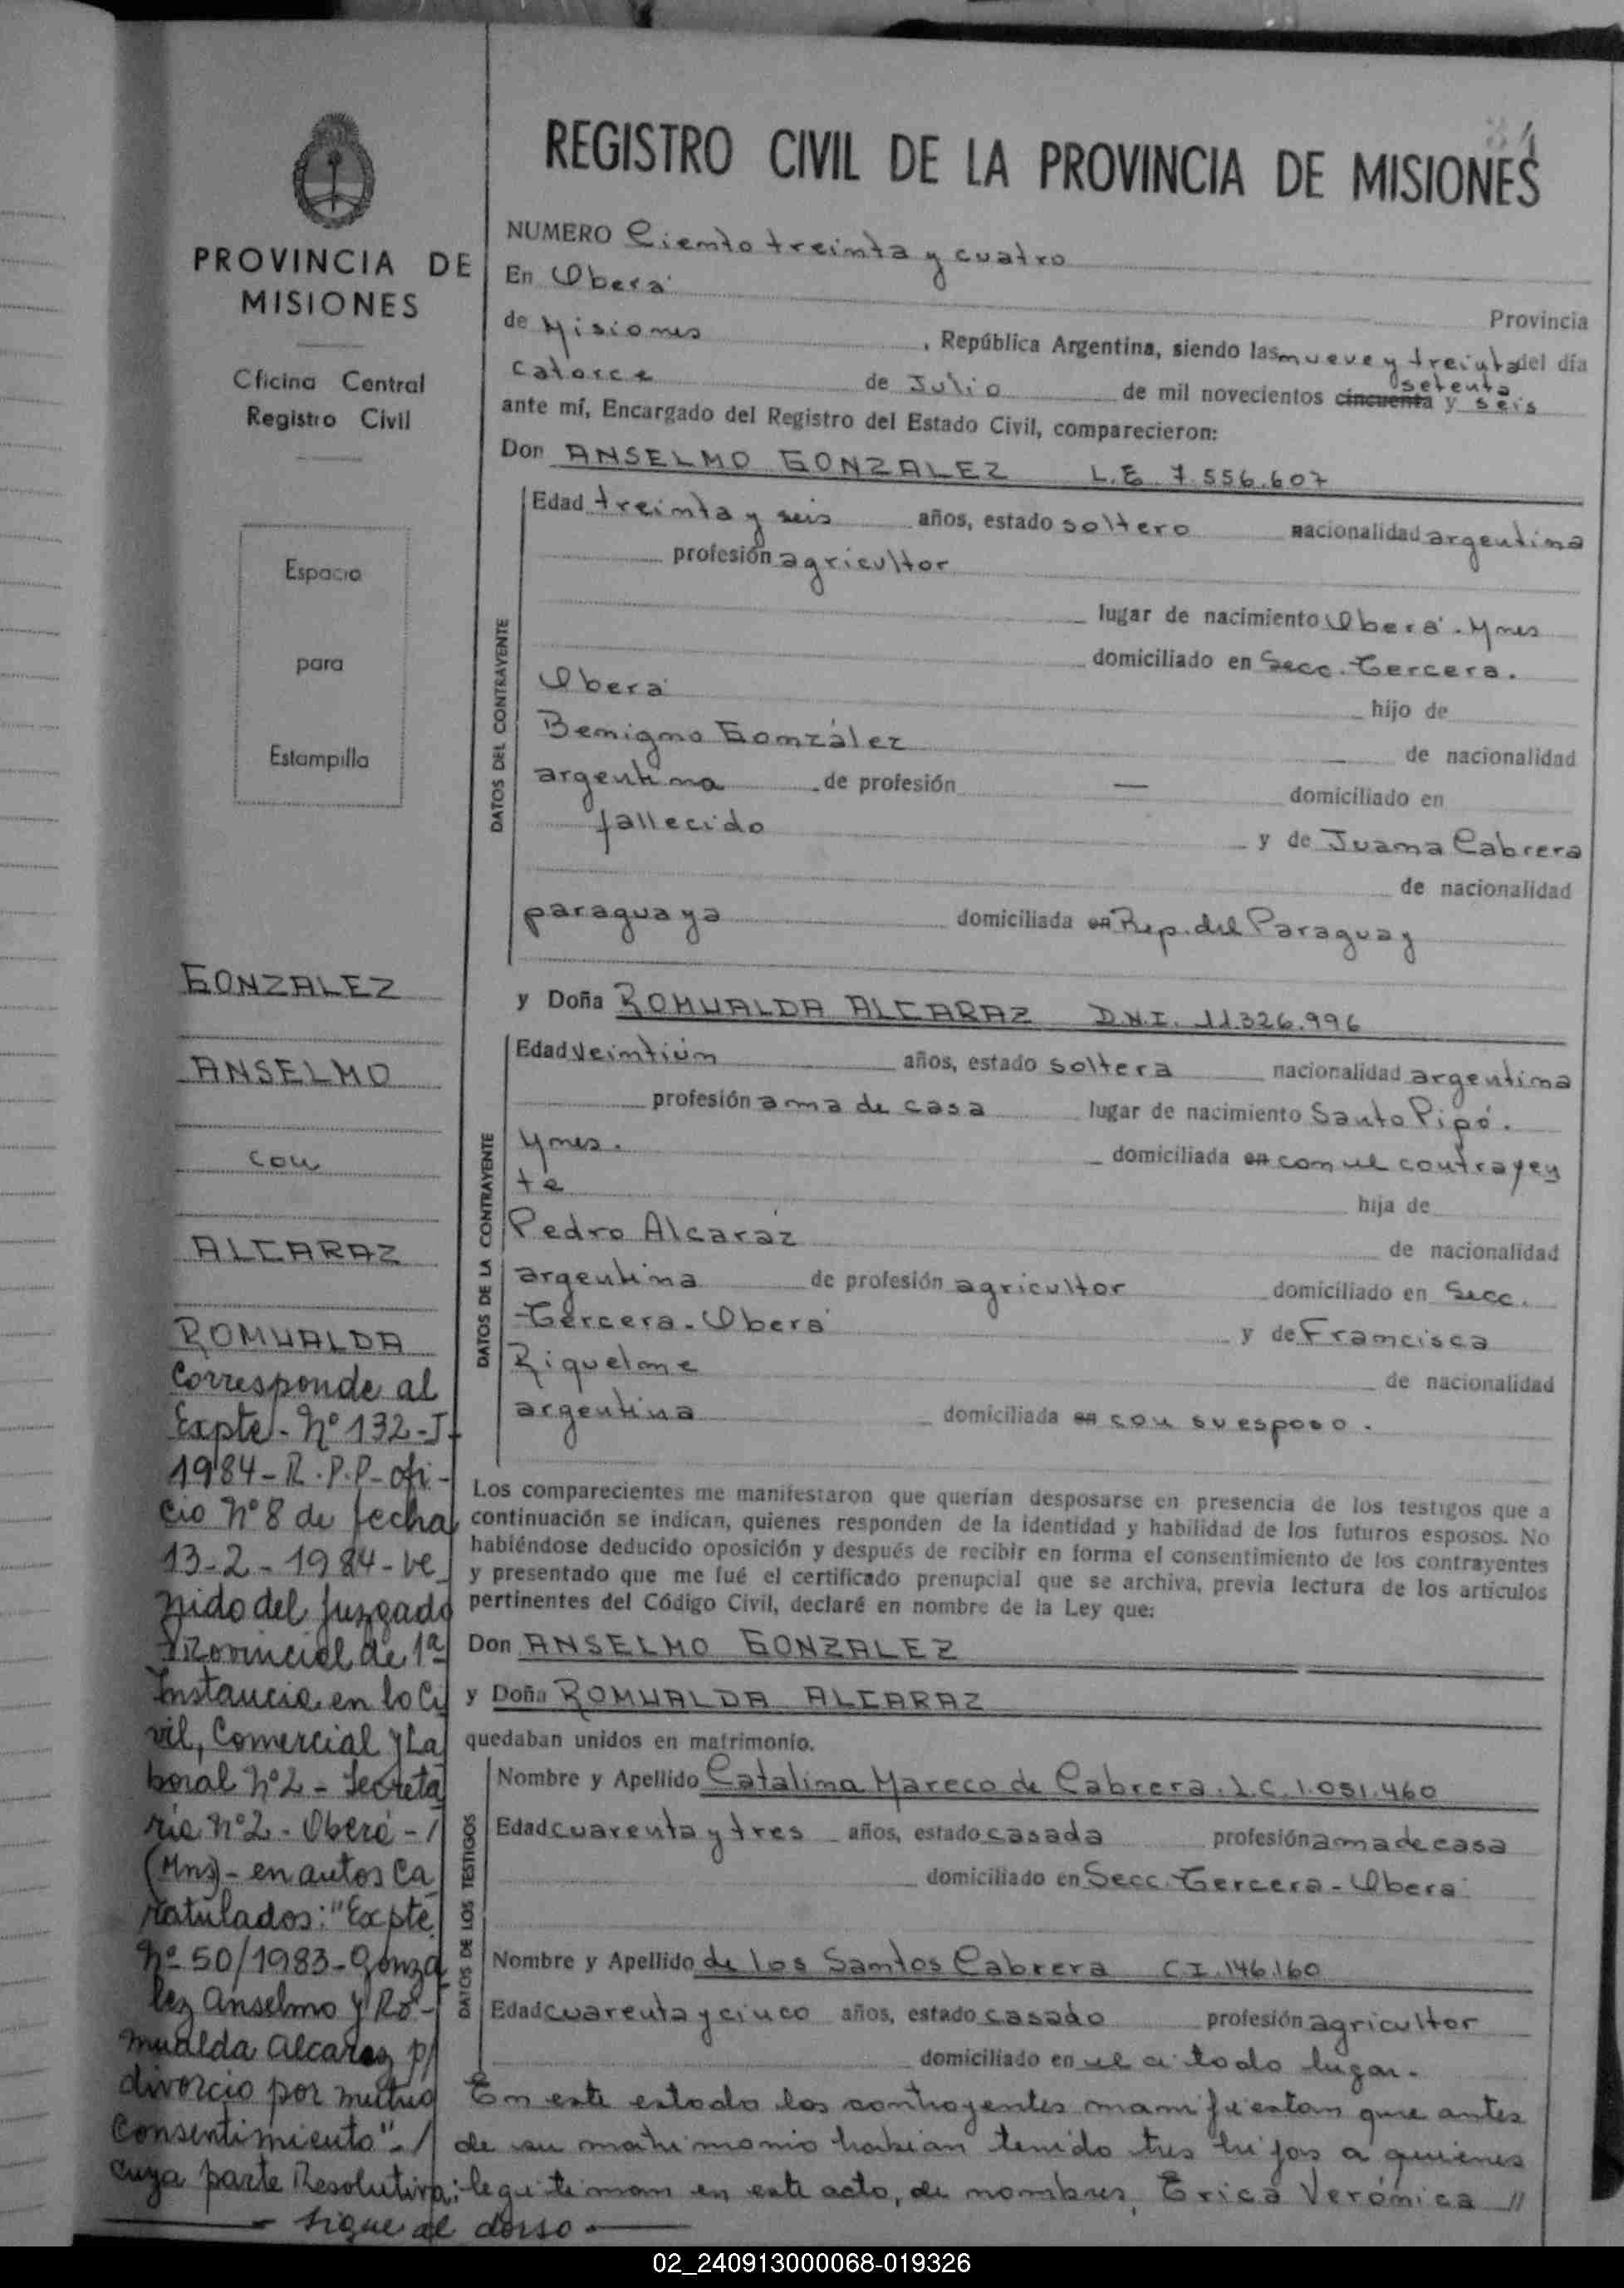 84
REGISTRO CIVIL DE LA PROVINCIA DE MISIONES
PROVINCIA DE
MISIONES
Oficina Central
Registro Civil
Espacio
para
Estampilla
GONZALEZ
ANSELMO
con
ALCARAZ
ROMUALDA
Corresponde al
Expte. Nº 132-J-
1984 - R.P.P- ofi-
cio Nº 8 de fecha
13-2-1984- ve
nido del Juzgado
Provincial de 1ª
Instancia en lo Ci
vil, Comercial y La
boral Nº 2 - Secreta
ria Nº 2 - Oberá - /
(Mns) - en autos Ca
ratulados: "Expte
Nº 50/1983 - Gonza
lez Anselmo y Ro-
mualda Alcaraz p/
divorcio por mutuo
Consentimiento".- /
cuya parte Resolutiva:
sigue al dorso.
NUMERO Ciento treinta y cuatro
En Oberá Provincia
de Misiones , República Argentina, siendo las nueve y treinta del día
catorce de Julio de mil novecientos cincuenta setenta y seis
ante mí, Encargado del Registro del Estado Civil, comparecieron:
Don ANSELMO GONZALEZ L.E. 7.556.607
DATOS DEL CONTRAYENTE
Edad treinta y seis años, estado soltero nacionalidad argentina
profesión agricultor
lugar de nacimiento Oberá. Mnes
domiciliado en Secc. Tercera.
Oberá hijo de
Benigno González de nacionalidad
argentina de profesión — domiciliado en
fallecido y de Juana Cabrera
de nacionalidad
paraguaya domiciliada en Rep. del Paraguay
y Doña ROMUALDA ALCARAZ D.N.I. 11.326.996
DATOS DE LA CONTRAYENTE
Edad veintiún años, estado soltera nacionalidad argentina
profesión ama de casa lugar de nacimiento Santo Pipó.
Mnes. domiciliada en con el contrayen
te hija de
Pedro Alcaráz de nacionalidad
argentina de profesión agricultor domiciliado en Secc.
Tercera - Oberá y de Francisca
Riquelme de nacionalidad
argentina domiciliada en con su esposo.
Los comparecientes me manifestaron que querían desposarse en presencia de los testigos que a
continuación se indican, quienes responden de la identidad y habilidad de los futuros esposos. No
habiéndose deducido oposición y después de recibir en forma el consentimiento de los contrayentes
y presentado que me fué el certificado prenupcial que se archiva, previa lectura de los artículos
pertinentes del Código Civil, declaré en nombre de la Ley que:
Don ANSELMO GONZALEZ
y Doña ROMUALDA ALCARAZ
quedaban unidos en matrimonio.
DATOS DE LOS TESTIGOS
Nombre y Apellido Catalina Mareco de Cabrera. L.C. 1.051.460
Edad cuarenta y tres años, estado casada profesión ama de casa
domiciliado en Secc. Tercera - Oberá
Nombre y Apellido de los Santos Cabrera C.I. 146.160
Edad cuarenta y cinco años, estado casado profesión agricultor
domiciliado en el citado lugar.
En este estado los contrayentes manifiestan que antes
de su matrimonio habian tenido tres hijos a quienes
legitiman en este acto, de nombres, Erica Verónica //
02_240913000068-019326